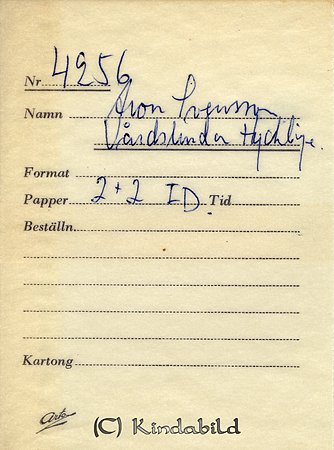 Nr 4256
Namn Aron Svensson
Vårdslunda Hycklinge.
Format
Papper 2+2 ID. Tid
Beställn.
Kartong
Ark
(C) Kindabild